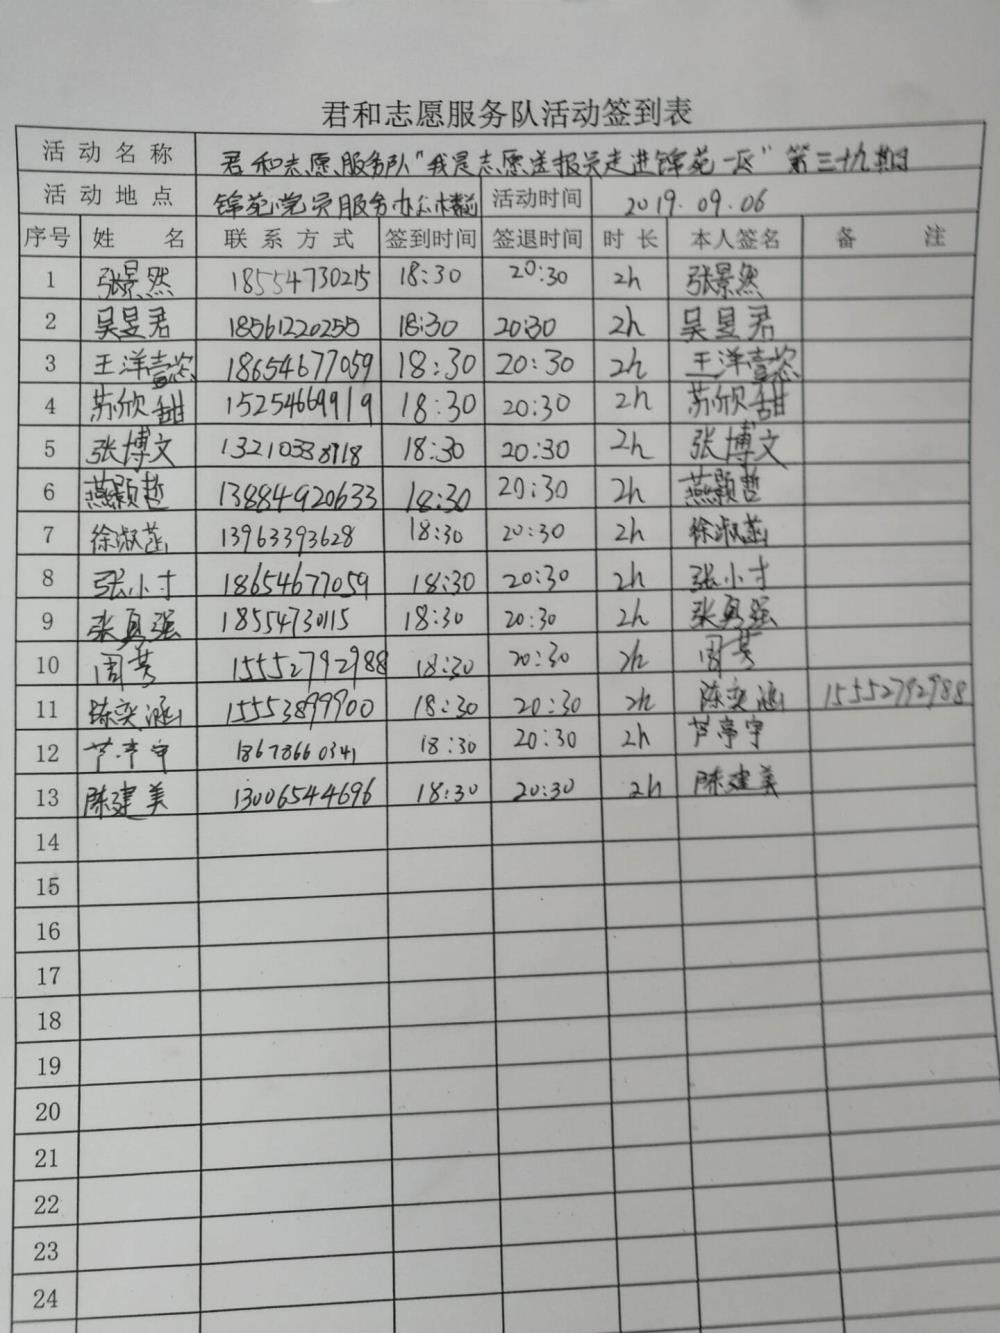 君和志愿服务队活动签到表
活动名称 君和志愿服务队"我是志愿送报员走进锦苑一区"第三十九期
活动地点 锦苑党员服务办公楼前 活动时间 2019.09.06
序号 姓名 联系方式 签到时间 签退时间 时长 本人签名 备注
1 张景然 18554730215 18:30 20:30 2h 张景然
2 吴昱君 18561220255 18:30 20:30 2h 吴昱君
3 王洋壹恣 18654677059 18:30 20:30 2h 王洋壹恣
4 苏欣甜 15254669919 18:30 20:30 2h 苏欣甜
5 张博文 13210338118 18:30 20:30 2h 张博文
6 燕颢哲 13884920633 18:30 20:30 2h 燕颢哲
7 徐淑菡 13963393628 18:30 20:30 2h 徐淑菡
8 张小寸 18654677059 18:30 20:30 2h 张小寸
9 张勇强 18554730115 18:30 20:30 2h 张勇强
10 周芳 15552792988 18:30 20:30 2h 周芳
11 陈奕涵 15553899900 18:30 20:30 2h 陈奕涵 15552792988
12 芦亭宇 18678660341 18:30 20:30 2h 芦亭宇
13 陈建美 13006544696 18:30 20:30 2h 陈建美
14
15
16
17
18
19
20
21
22
23
24